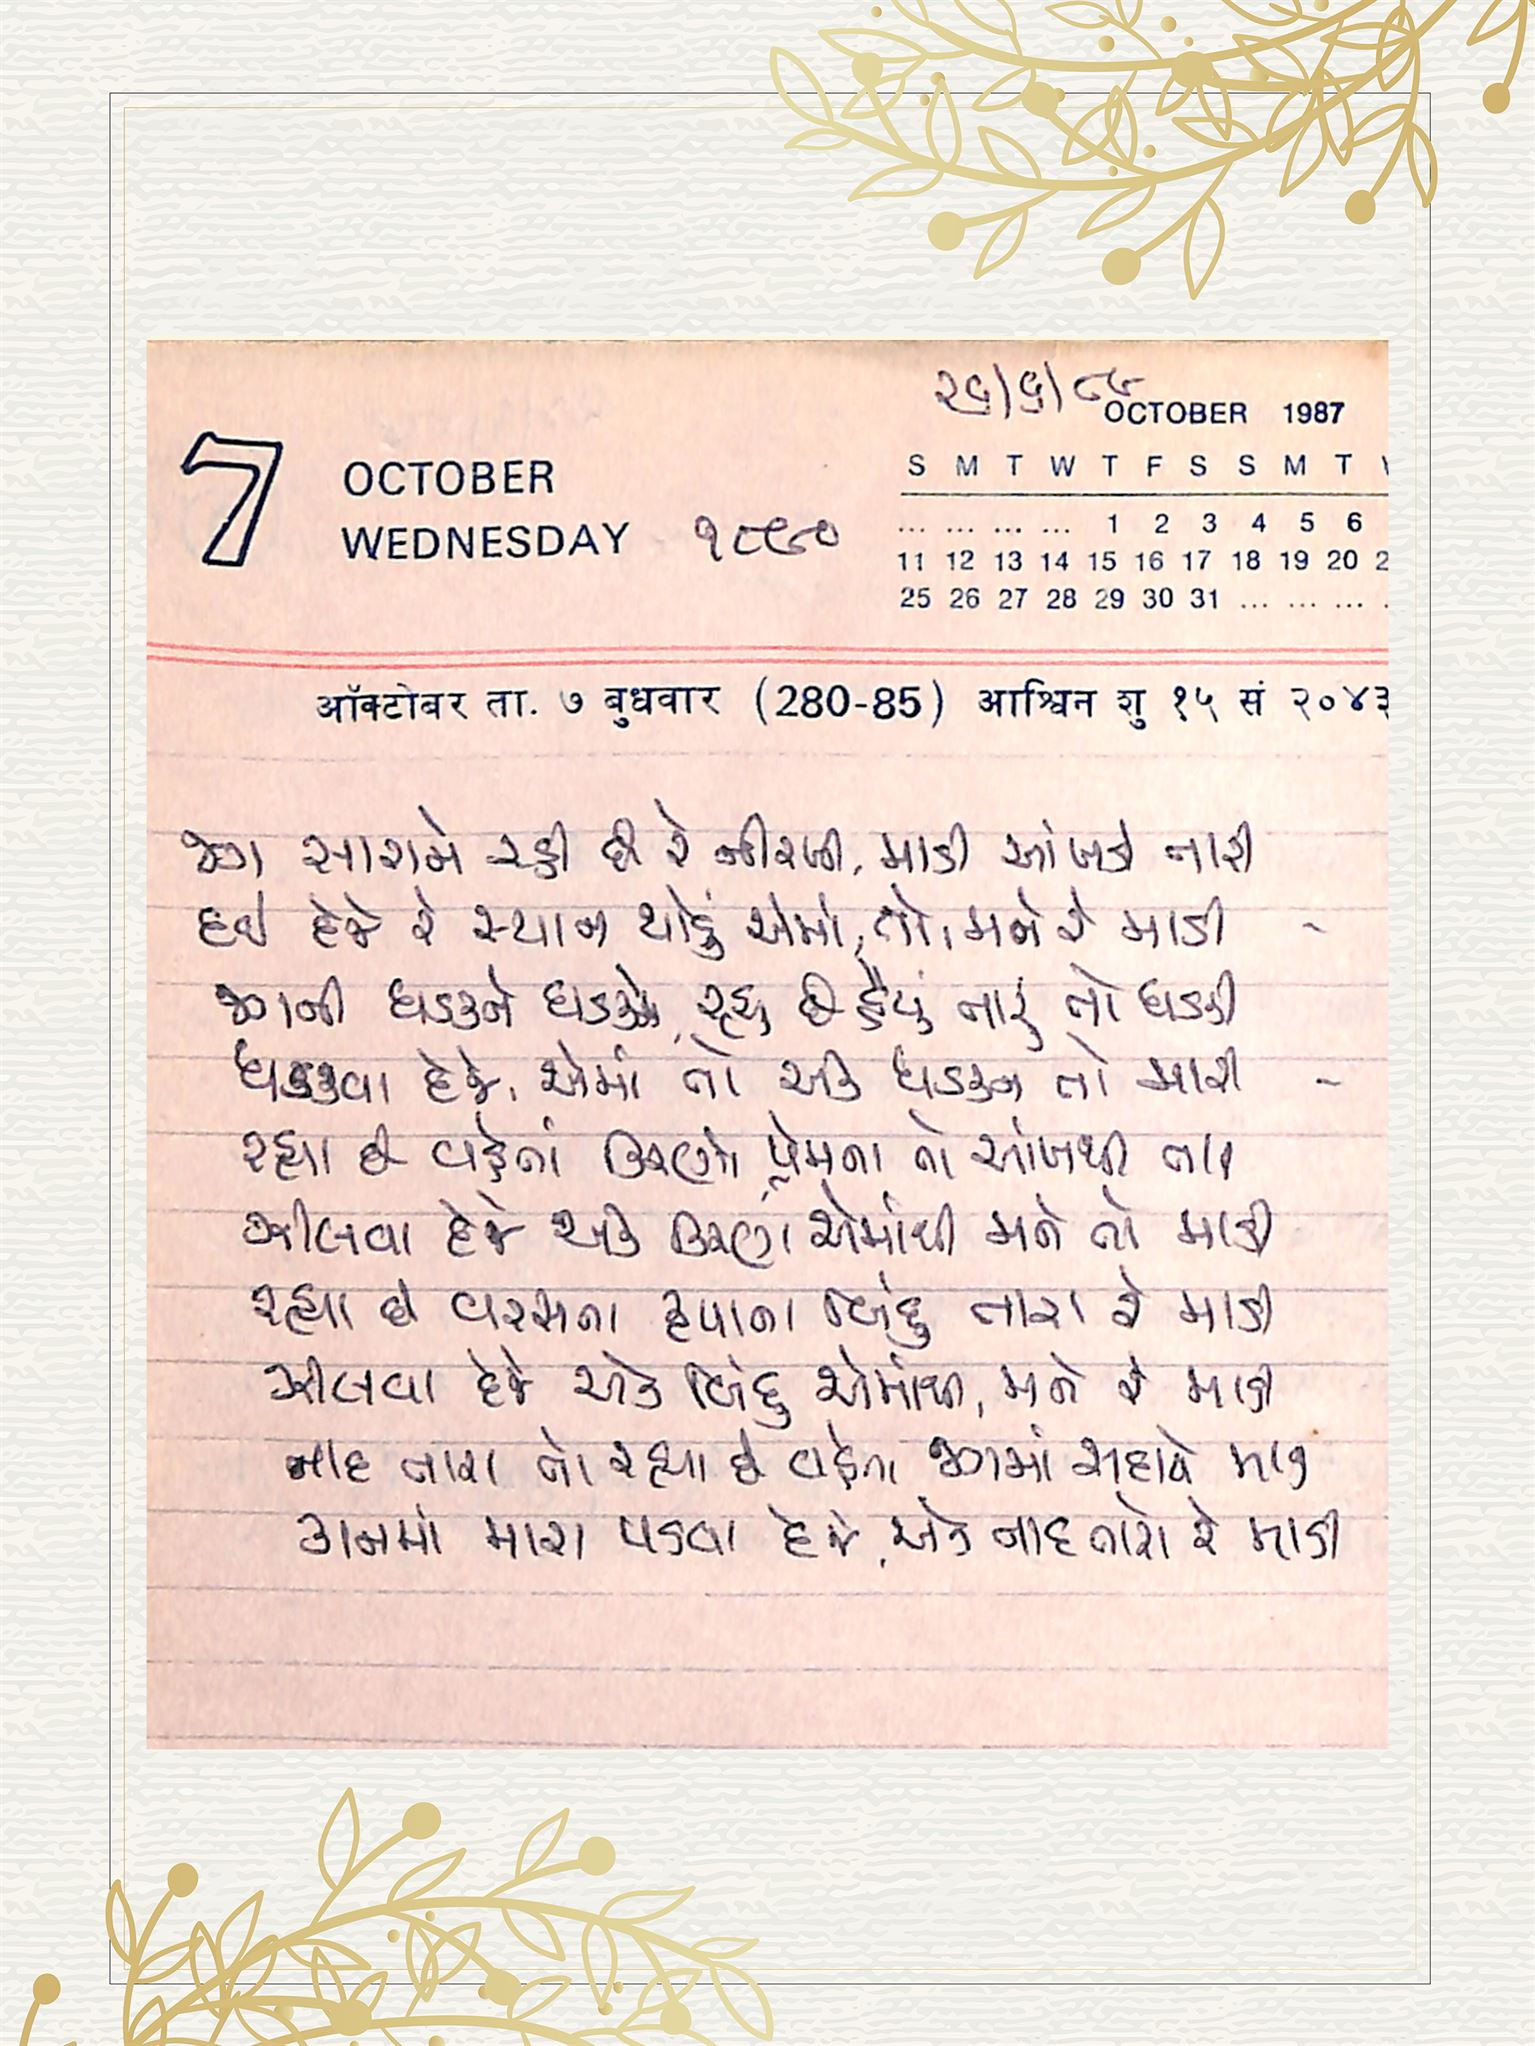 ૨૬/૬/૮૯
OCTOBER 1987
7 OCTOBER
WEDNESDAY ૧૮૯૦
S M T W T F S S M T
... ... ... ... 1 2 3 4 5 6
11 12 13 14 15 16 17 18 19 20 2
25 26 27 28 29 30 31 ... ... ...
ऑक्टोबर ता. ७ बुधवार (280-85) आश्विन शु १५ सं २०४३
જગ સારાને રહી છે રે નીરખી, માડી આંખડી તારી
દઈ દેજે રે સ્થાન થોડું એમાં, તો, મને રે માડી -
જગની ધડકને ધડકને, રહ્યું છે હૈયું તારું તો ધડકી
ધડકવા દેજે, એમાં તો એક ધડકન તો મારી -
રહ્યા છે વહેતાં કિરણો પ્રેમના તો આંખથી તારી
ઝીલવા દેજે એક કિરણ એમાંથી મને તો માડી
રહ્યા છે વરસતા કૃપાના બિંદુ તારા રે માડી
ઝીલવા દેજે એક બિંદુ એમાંથી, મને રે માડી
નાદ તારા તો રહ્યા છે વહેતા જગમાં સદાયે માડી
કાનમાં મારા પડવા દેજે, એક નાદ તારો રે માડી